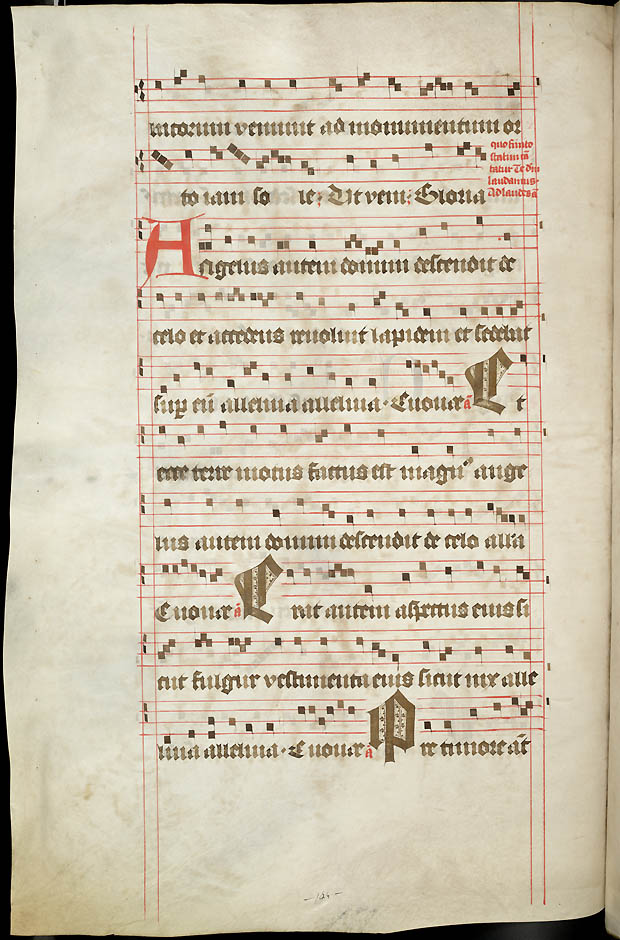 mtorum veniunt ad monumentum or
to iam so le. Ut veni. Gloria
quo finito
statim in
tatur Te deu
laudamus.
Ad laudes a
Angelus autem domini descendit de
celo et accedens revolvit lapidem et sedebat
sup eu alleluia alleluia. Euouae a Et
ecce terre motus factus est magn9 ange
lus autem domini descendit de celo alla
Euouae a Erat autem aspectus eius si
cut fulgur vestimenta eius sicut nix alle
luia alleluia. Euouae a Pre timore at